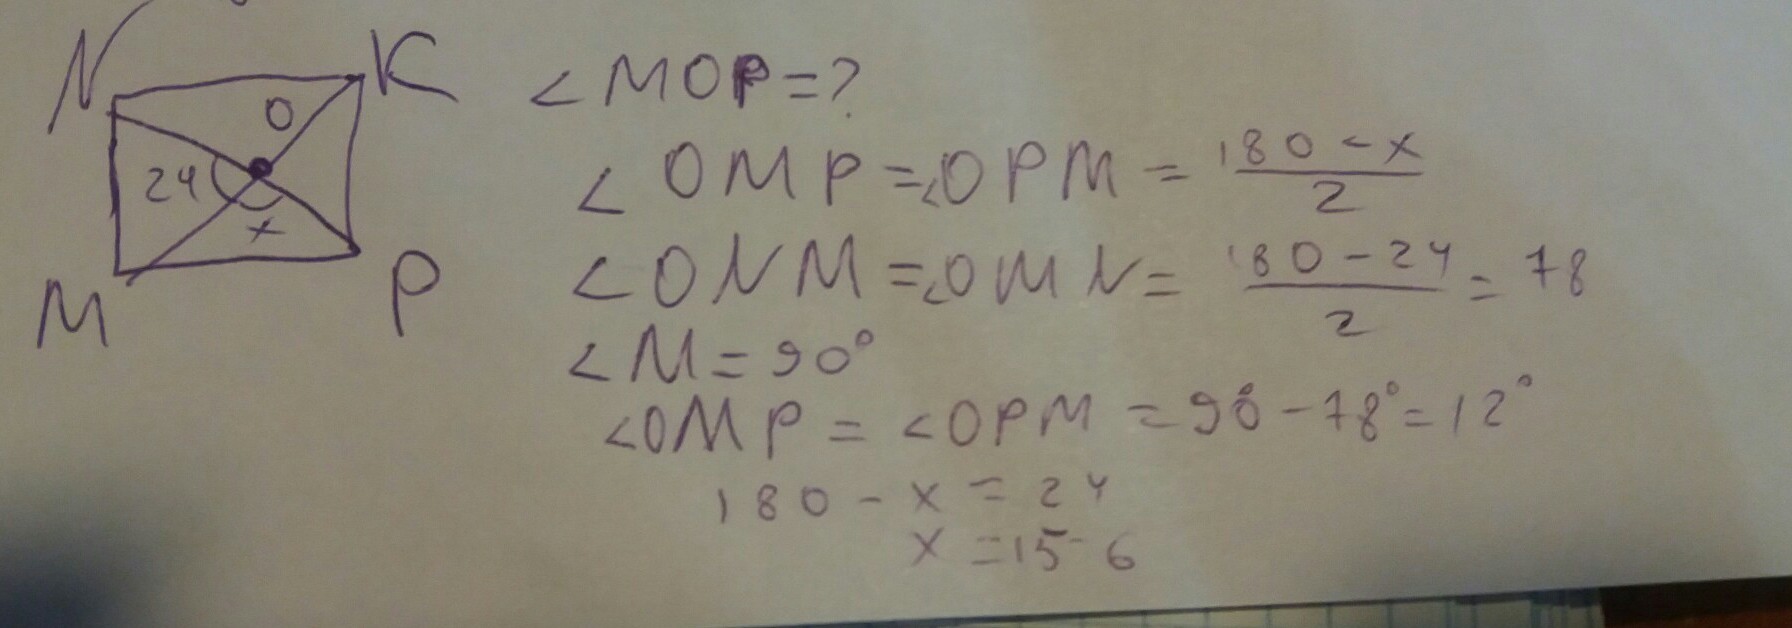 N
K
O
24
x
M
P
∠MOP=?
∠OMP=∠OPM=(180-x)/2
∠ONM=∠OMN=(180-24)/2=78
∠M=90°
∠OMP=∠OPM=90-78°=12°
180-x=24
x=156